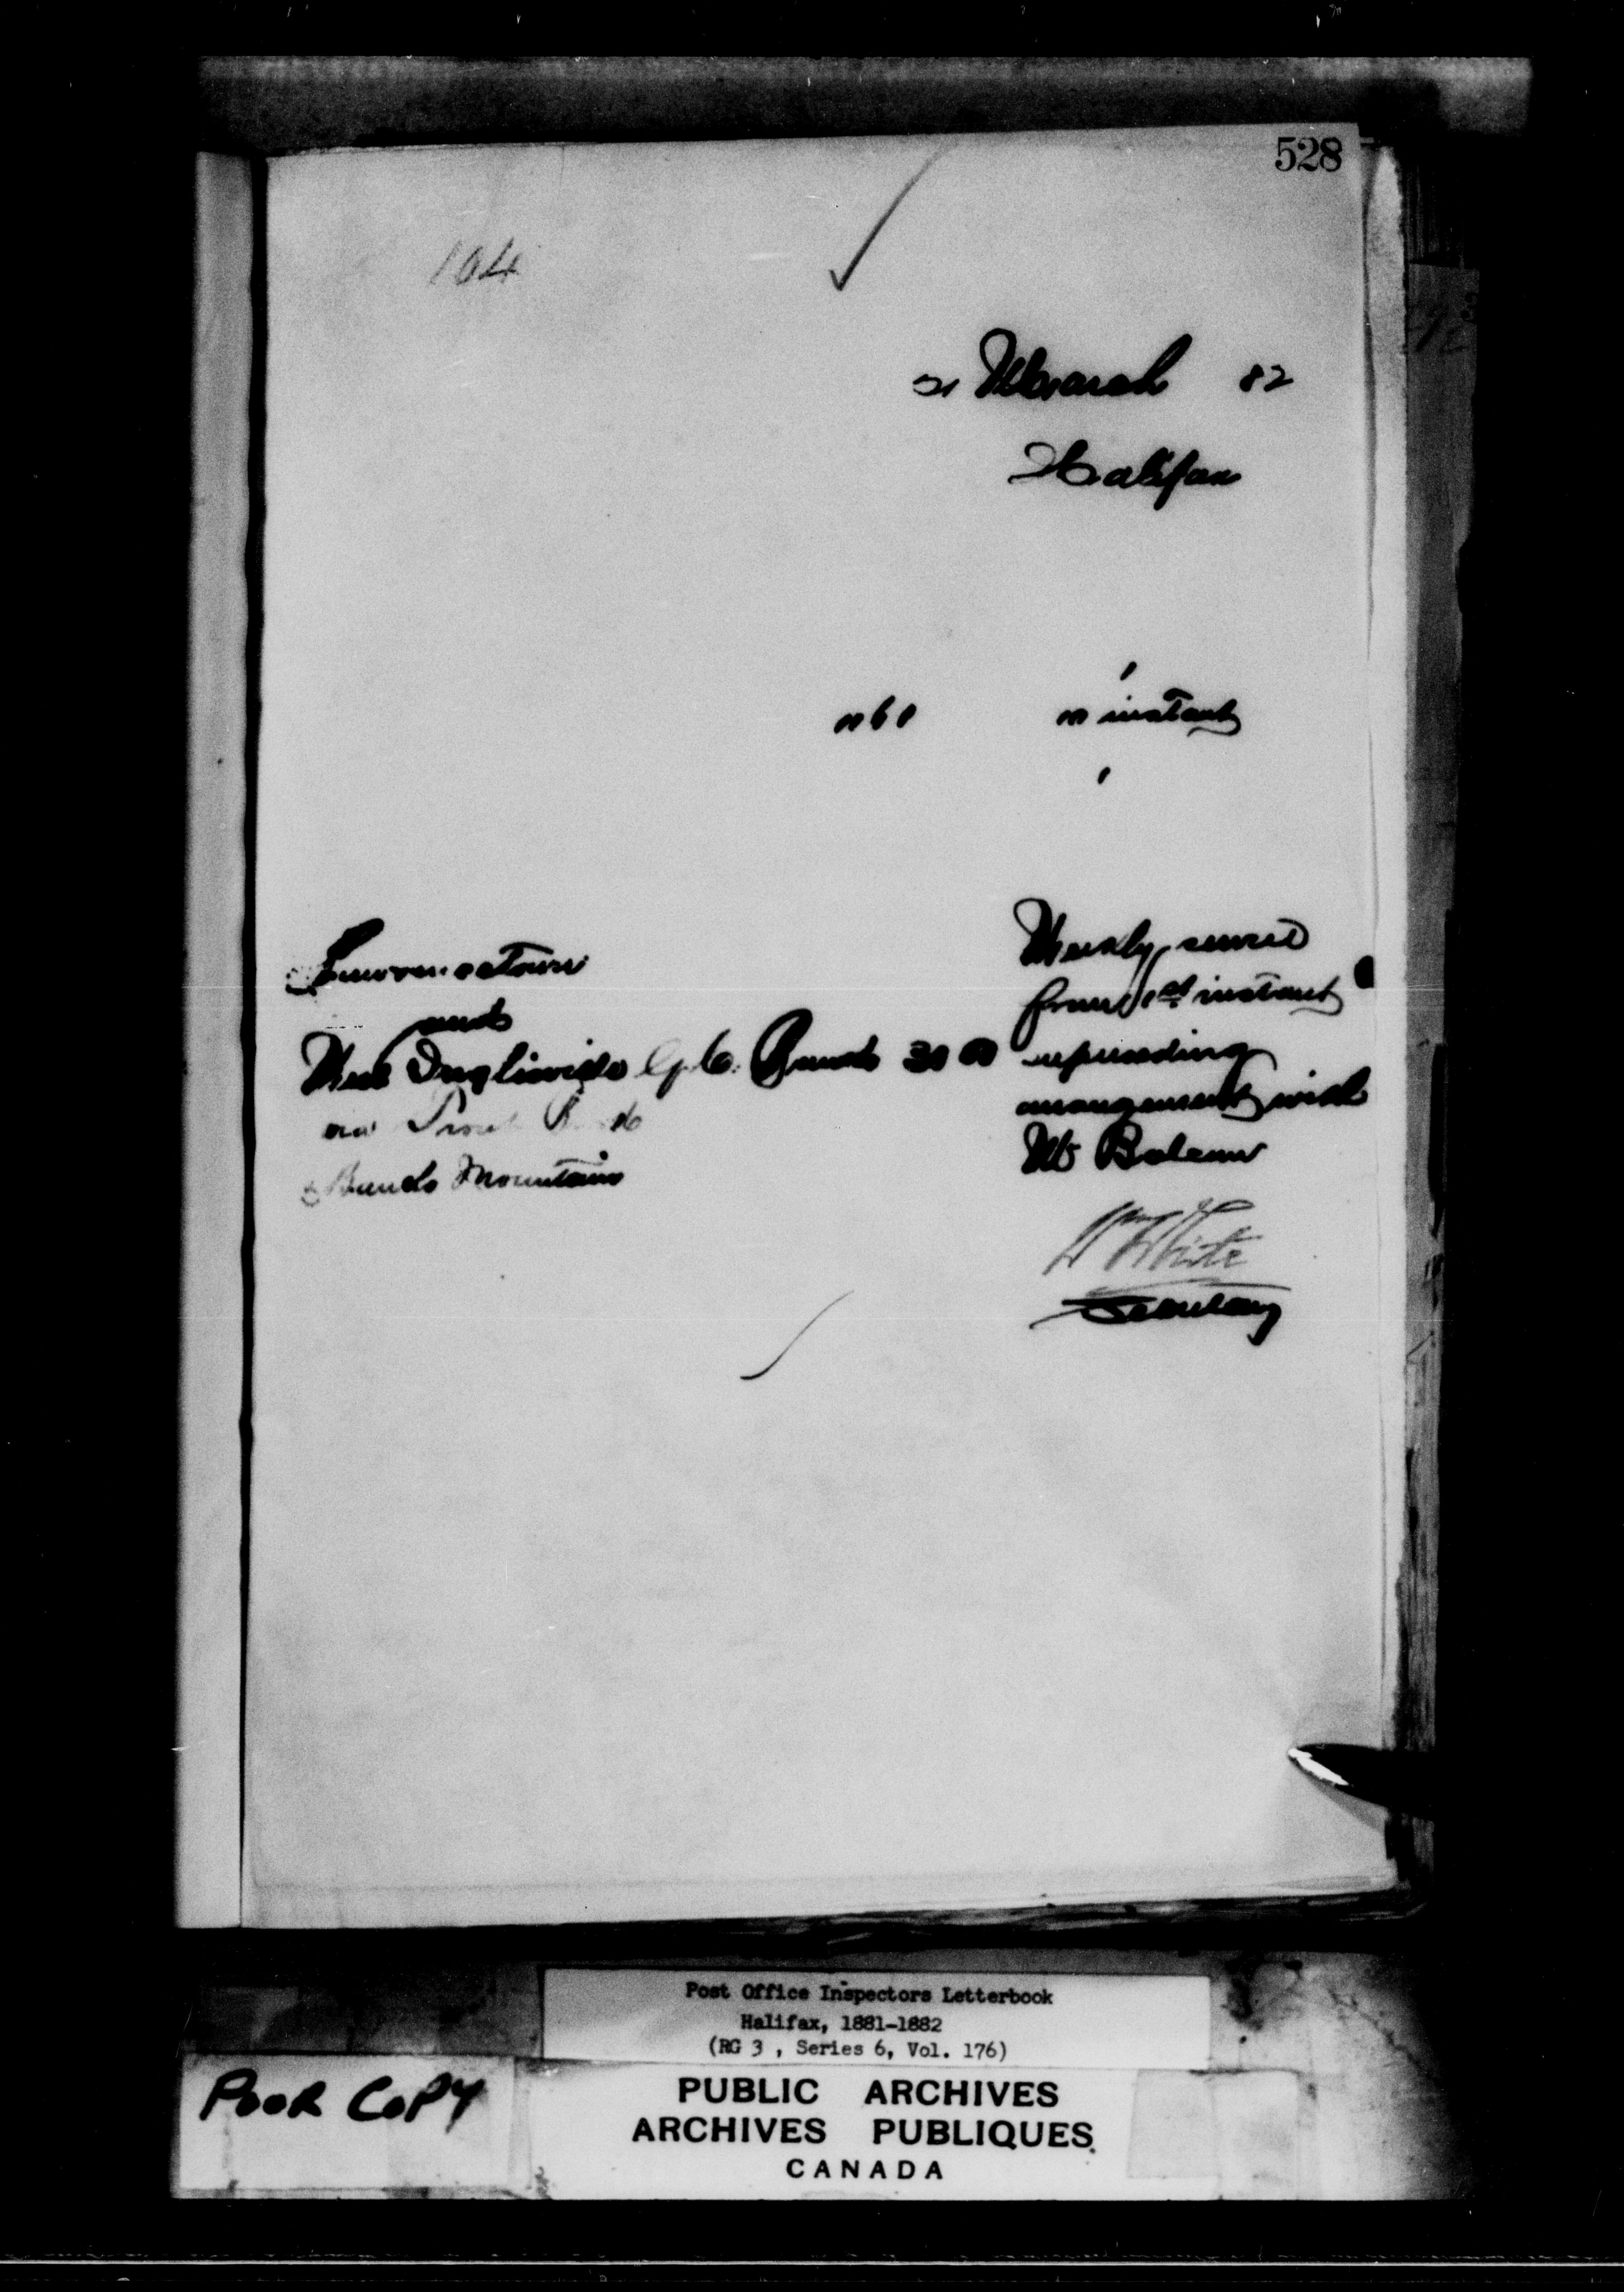 528
104
21 March 82
Halifax
instant
Lawrencetown
and
West Inglisville G. C. Banks 30 00
via
& Banks Mountain
Weekly service
from 1st instant
superseding
arrangement with
Mr
Wm White
Secretary
Post Office Inspectors Letterbook
Halifax, 1881-1882
(RG 3 , Series 6, Vol. 176)
POOR COPY
PUBLIC ARCHIVES
ARCHIVES PUBLIQUES
CANADA